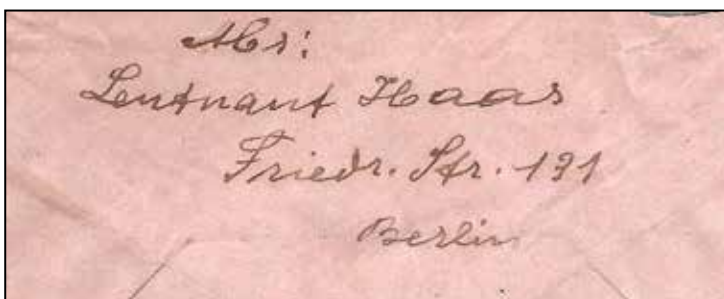 Abs:
Leutnant Haas
Friedr. Str. 131
Berlin